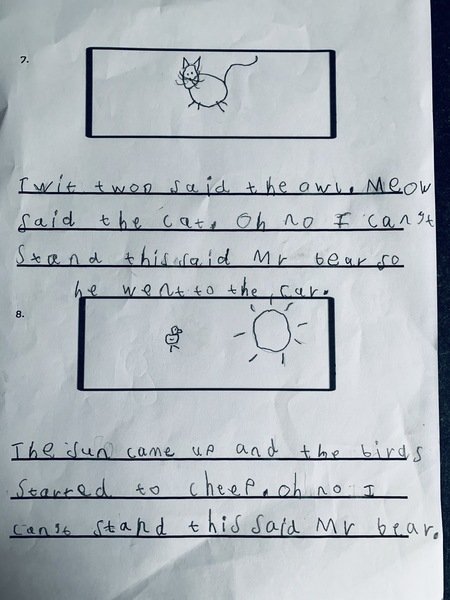 7.
Twit twoo said the owl. Meow
said the cat. Oh no I can't
Stand this said Mr bear so
he went to the car.
8.
The sun came up and the birds
Starred to cheep. Oh no I
can't stand this said Mr bear.